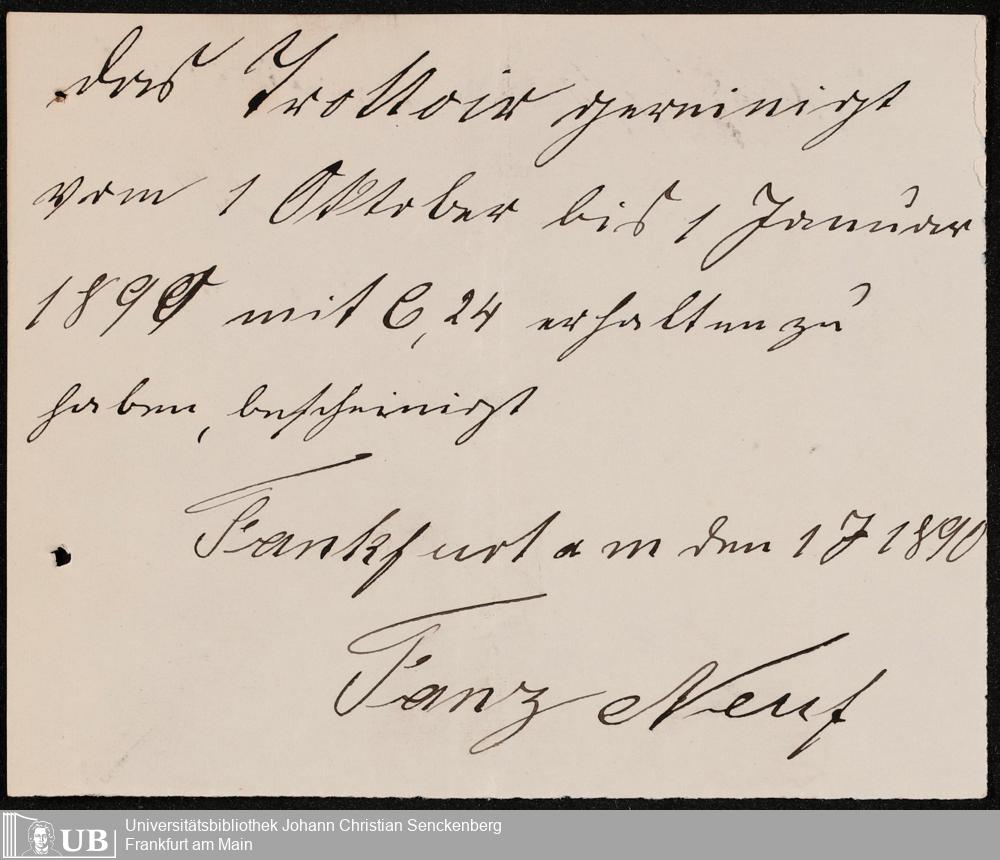 das Trottoir gereinigt
vom 1 Oktober bis 1 Januar
1890 mit 6,24 erhalten zu
haben, bescheinigt
Fankfurt a m den 1 J 1890
Fanz Neuf
UB Universitätsbibliothek Johann Christian Senckenberg
Frankfurt am Main